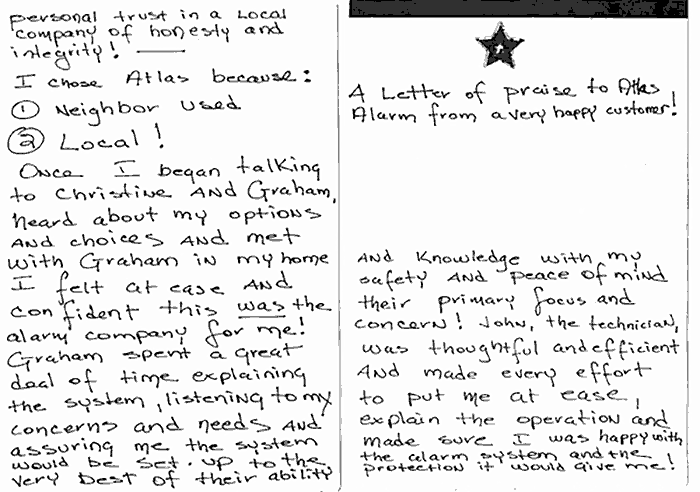 personal trust in a Local
company of honesty and
integrity! —
I chose Atlas because:
① Neighbor used
② Local!
Once I began talking
to Christine AND Graham,
heard about my options
AND choices AND met
with Graham in my home
I felt at ease AND
confident this was the
alarm company for me!
Graham spent a great
deal of time explaining
the system, listening to my
concerns and needs AND
assuring me the system
would be set-up to the
very best of their ability
A Letter of praise to Atlas
Alarm from a very happy customer!
AND Knowledge with my
safety AND peace of mind
their primary focus and
concern! John, the technician,
was thoughtful and efficient
AND made every effort
to put me at ease,
explain the operation and
made sure I was happy with
the alarm system and the
protection it would give me!